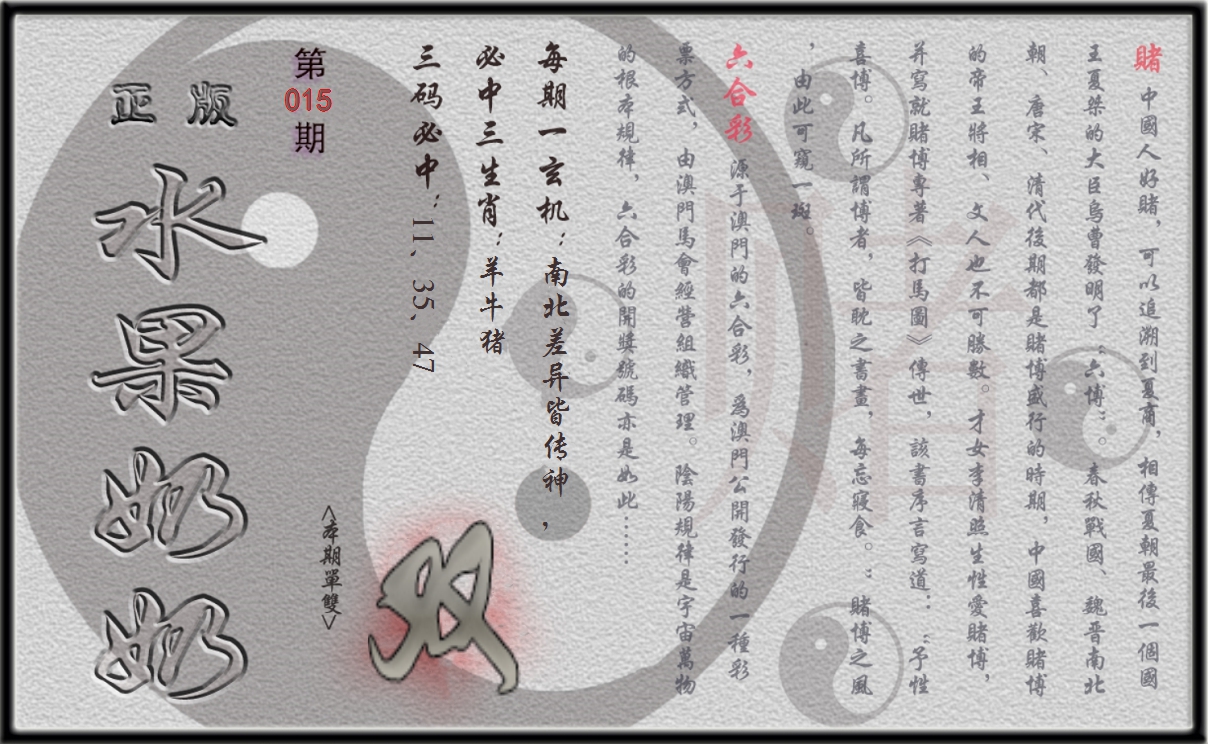 賭 中國人好賭，可以追溯到夏商，相傳夏朝最後一個國
王夏桀的大臣烏曹發明了“六博”。春秋戰國、魏晉南北
朝、唐宋、清代後期都是賭博盛行的時期，中國喜歡賭博
的帝王將相、文人也不可勝數。才女李清照生性愛賭博，
并寫就賭博專著《打馬圖》傳世，該書序言寫道：“予性
喜博。凡所謂博者，皆耽之書畫，每忘寢食。：賭博之風
，由此可窺一斑。
六合彩 源于澳門的六合彩，為澳門公開發行的一種彩
票方式，由澳門馬會經營組織管理。陰陽規律是宇宙萬物
的根本規律，六合彩的開獎號碼亦是如此……
每期一玄机：南北差异皆传神，
必中三生肖：羊牛猪
三码必中：11、35、47
双
<本期單雙>
第
015
期
正版
水果奶奶
赌